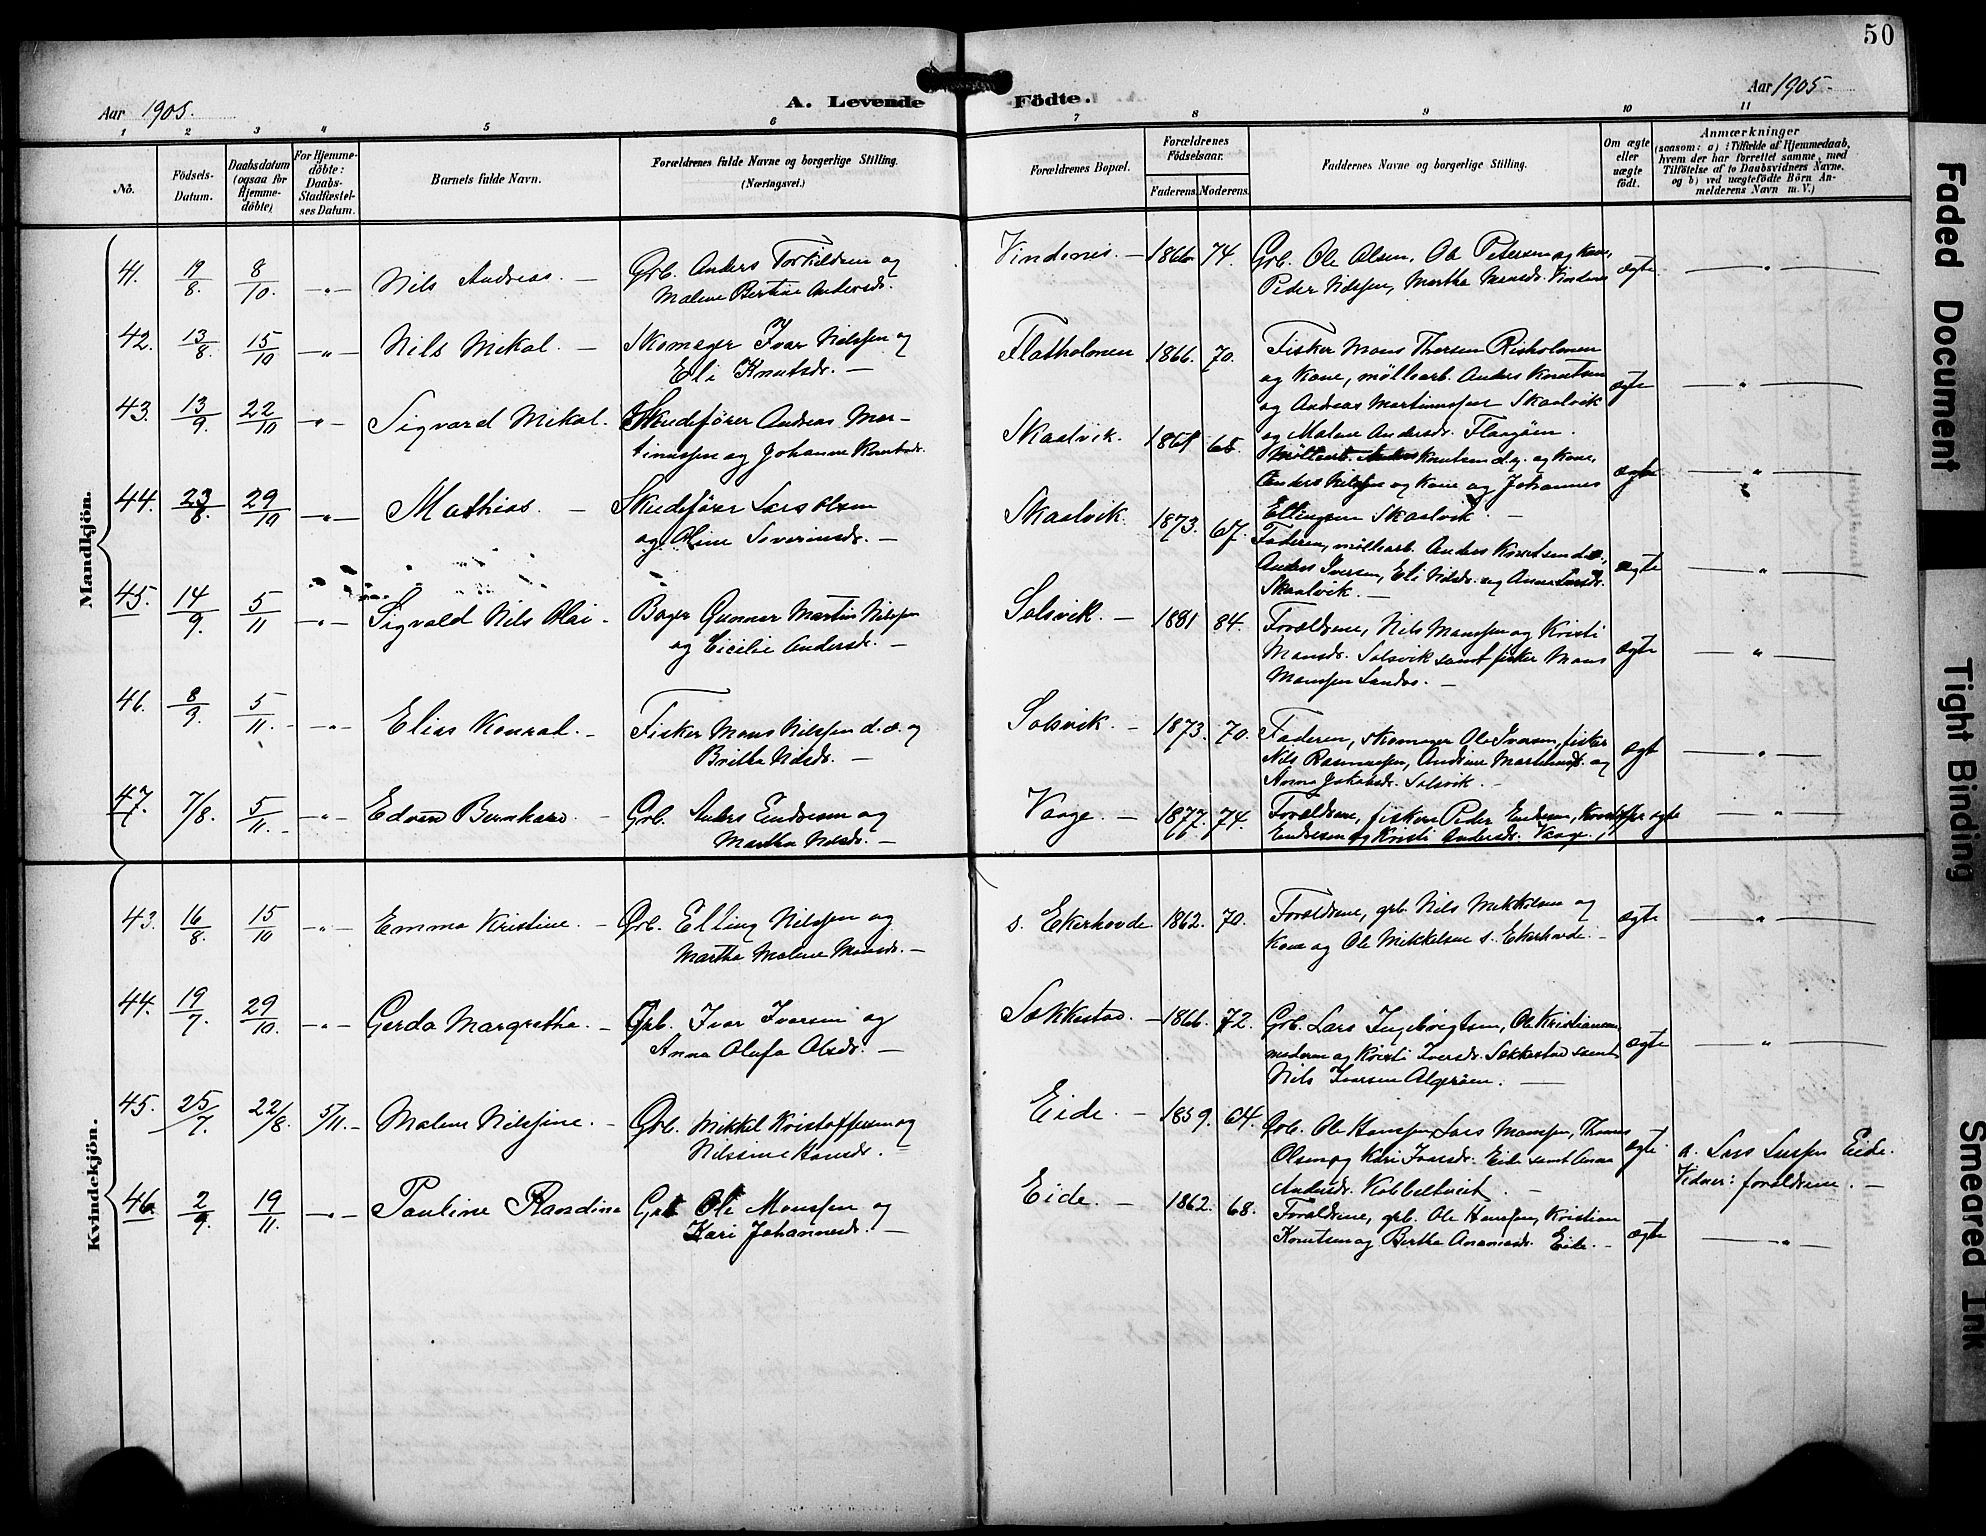 50
Aar 1905.
A. Levende Födte.
Aar 1905.
1 2 3 4 5 6 7 8 9 10 11
No.
Födsels-
Datum.
Daabsdatum
(ogsaa for
Hjemme-
döbte)
For Hjemme-
döbte:
Daabs-
Stadfæstel-
ses Datum.
Barnets fulde Navn.
Forældrenes fulde Navne og borgerlige Stilling.
(Næringsvei.)
Forældrenes Bopæl.
Forældrenes
Födselsaar.
Faderens. Moderens.
Faddernes Navne og borgerlige Stilling.
Om ægte
eller
uægte
födt.
Anmærkninger
(saasom: a) i Tilfælde af Hjemmedaab,
hvem der har forrettet samme, med
Tilföielse af to Daabsvidners Navne,
og b) ved uægtefödte Börn An-
melderens Navn m. V.)
Mandkjön.
41. 19/8. 8/10. -"- Nils Andreas. - Grb. Anders Torkildsen og
Malene Bertine Andersdr.
Vindenes. - 1866. 74. Grb. Ole Olsen, Ole Petersen og kone,
Peder Nilssen, Martha Monsdr. Vindenes
ægte - " -
42. 13/8. 15/10 -"- Nils Mikal. - Skomager Ivar Nilssen og
Eli Knutsdr. -
Flatholmen 1866. 70. Fisker Mons Thorsen Risholmen
og kone, möllearb. Anders Knutsen
og Andreas Martinussen Skaalvik
og Malene Andersdr. Flaagöen.
ægte - " -
43. 13/9. 22/10 -"- Sigvard Mikal. Skudeförer Andreas Mar-
tinussen og Johanne Knutsdr.
Skaalvik. 65. Möllearb. Anders Knutsen d.y. og kone,
Anders Nilssen og kone og Johannes
Ellingsen Skaalvik. -
ægte - " -
44. 23/8. 29/10 -"- Mathias. - Skudeförer Lars Olsen
og Oline Severinsdr. -
Skaalvik. 1873. 67. Faderen, möllearb. Anders Knutsen d.æ.,
Anders Iversen, Eli Nilsdr. og Anna Larsdr.
Skaalvik. -
ægte - " -
45. 14/9. 5/11 -"- Sigvald Nils Olai - Bager Gunnar Martin Nilssen
og Cicilie Andersdr. -
Solsvik. - 1881 84. Forældrene, Nils Monssen og Kristi
Monsdr. Solsvik samt fisker Mons
Monssen Landro. -
ægte - " -
46. 8/9. 5/11. - -"- Elias Konrad. - Fisker Mons Nilssen d.æ. og
Brithe Nilsdr. -
Solsvik. - 1873. 70. Faderen, skomager Ole Iversen, fisker
Nils Rasmussen, Andrine Martinusdr. og
Anna Jakobsdr. Solsvik. -
ægt - " -
47. 7/8. 5/11. - -"- Edvin Bernhard. - Grb. Anders Endresen og
Martha Nilsdr. -
Vaage. - 1877. 74. Forældrene, fiskere Peder Endresen, Kristoffer
Endresen og Kristi Andersdr. Vaage.
ægte - " -
Kvindekjön.
43. 16/8. 15/10 -"- Emma Kristine. - Grb. Elling Nilssen og
Martha Malene Monsdr. -
s. Ekerhovde 1862. 70. Forældrene, grb. Nils Mikkelsen og
kone og Ole Mikkelsen s. Ekerhovde. -
ægte - " -
44. 19/7. 29/10. -"- Gerda Margrethe. - Grb. Ivar Ivarsen og
Anna Olufa Olsdr. -
Sekkestad. - 1866. 72. Grb. Lars Ingebrigtsen, Ole Kristiansen,
moderen og Kristi Iversdr. Sekkestad samt
Nils Ivarsen Algeröen. -
ægte - " -
45. 25/7. 22/8. 5/11. - Malene Nilssine. - Grb. Mikkel Kristoffersen og
Nilssine Hansdr. -
Eide. - 1859. 64. Grb. Ole Hanssen, Lars Monssen, Thomas
Olsen og Kari Ivarsdr. Eide samt Anna
Andersdr. Kobbeltveit. -
ægte a. Lars Larsen Eide.
Vidner: forældrene. -
46. 2/9. 19/11. -"- Pauline Randine Grb. Ole Monssen og
Kari Johannesdr. -
Eide. - 1862. 68. Forældrene, grb. Ole Hanssen, Kristian
Knutsen og Berthe Eide. -
ægte - " -
Faded Document
Tight Binding
Smeared Ink